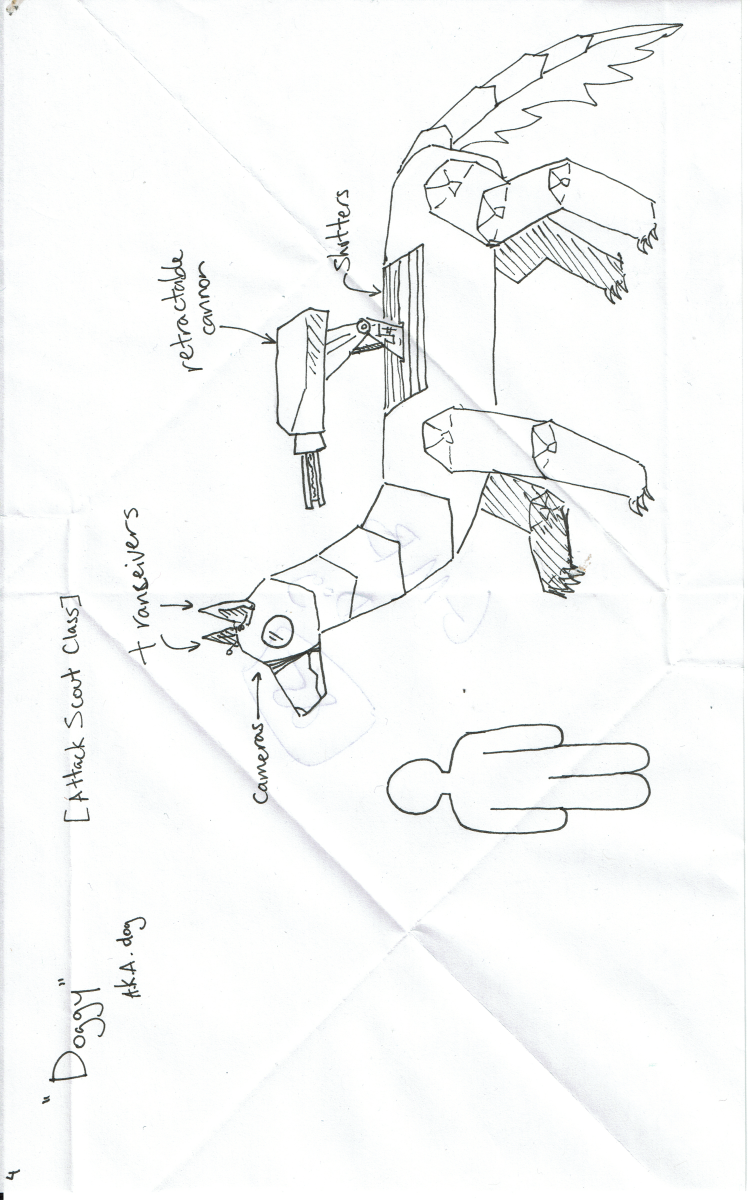 4
"Doggy"
A.K.A. dog
[Attack Scout Class]
transeivers
cameras
retractable
cannon
Shutters